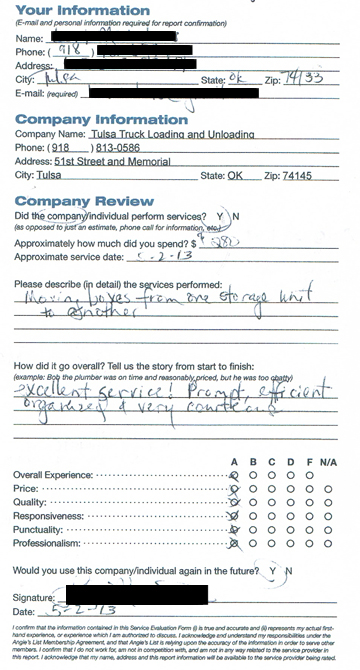 Your Information
(E-mail and personal information required for report confirmation)
Name:
Phone: ( 918 )
Address:
City: Tulsa State: OK Zip: 74133
E-mail: (required)
Company Information
Company Name: Tulsa Truck Loading and Unloading
Phone: ( 918 ) 813-0586
Address: 51st Street and Memorial
City: Tulsa State: OK Zip: 74145
Company Review
Did the company/individual perform services? Y N
(as opposed to just an estimate, phone call for information, etc.)
Approximately how much did you spend? $
Approximate service date: 5-2-13
Please describe (in detail) the services performed:
Moving boxes from one storage unit
to another
How did it go overall? Tell us the story from start to finish:
(example: Bob the plumber was on time and reasonably priced, but he was too chatty)
excellent service! Prompt, efficient
organized & very courteous
A B C D F N/A
Overall Experience:
Price:
Quality:
Responsiveness:
Punctuality:
Professionalism:
Would you use this company/individual again in the future? Y N
Signature:
Date: 5-2-13
I confirm that the information contained in this Service Evaluation Form (i) is true and accurate and (ii) represents my actual first-
hand experience, or experience which I am authorized to discuss. I acknowledge and understand my responsibilities under the
Angie's List Membership Agreement, and that Angie's List is relying upon the accuracy of the information in order to serve other
members. I confirm that I do not work for, am not in competition with, and am not in any way related to the service provider in
this report. I acknowledge that my name, address and this report information will be available to the service provider being rated.